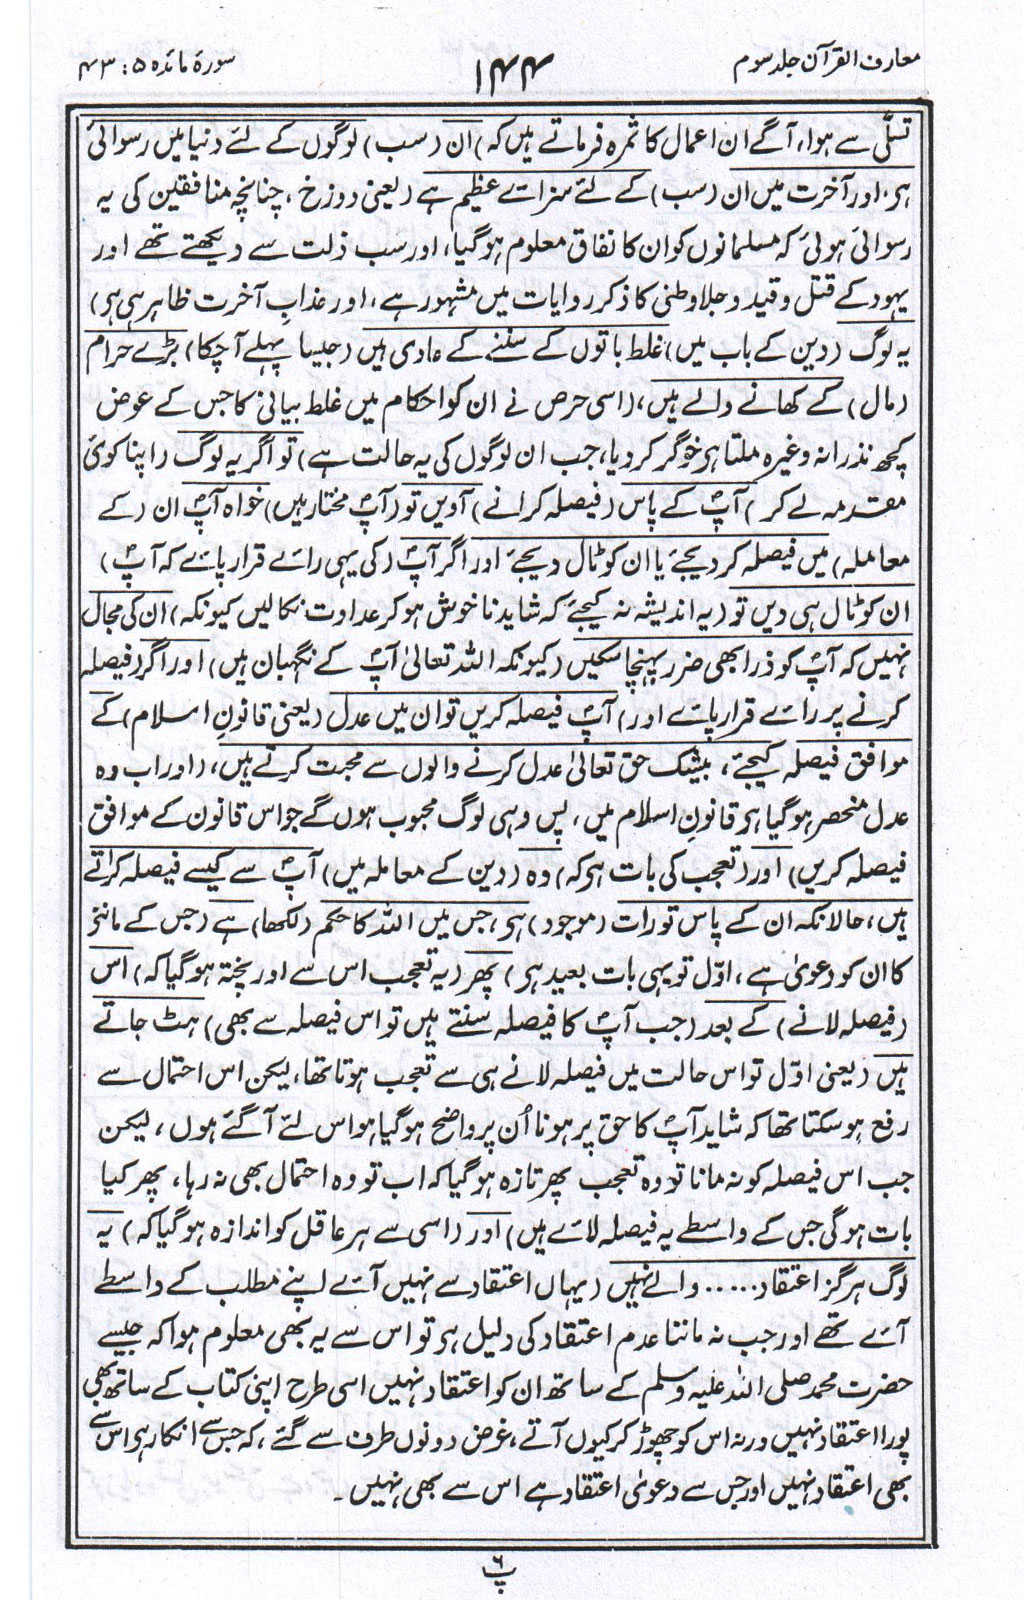 معارف القرآن جلد سوم
۱۴۴
سورۃ مائدہ ۵ : ۴۳
تسلّی سے ہوا، آگے ان اعمال کا ثمرہ فرماتے ہیں کہ) ان (سب) لوگوں کے لئے دنیا میں رسوائی
ہی، اور آخرت میں ان (سب) کے لئے سزائے عظیم ہے (یعنی دوزخ، چنانچہ منافقین کی یہ
رسوائی ہوئی کہ مسلمانوں کو ان کا نفاق معلوم ہو گیا، اور سب ذلت سے دیکھتے تھے اور
یہود کے قتل و قید و جلا وطنی کا ذکر روایات میں مشہور ہے، اور عذابِ آخرت ظاہر ہی ہی)
یہ لوگ (دین کے باب میں) غلط باتوں کے سننے کے عادی ہیں (جیسا پہلے آچکا) بڑے حرام
(مال) کے کھانے والے ہیں، (اسی حرص نے ان کو احکام میں غلط بیانی کا جس کے عوض
کچھ نذرانہ وغیرہ ملتا ہی خوگر کر دیا، جب ان لوگوں کی یہ حالت ہے) تو اگر یہ لوگ (اپنا کوئی
مقدمہ لے کر) آپؐ کے پاس (فیصلہ کرانے) آویں تو (آپؐ مختار ہیں) خواہ آپؐ ان (کے
معاملہ) میں فیصلہ کر دیجئے یا ان کو ٹال دیجئے اور اگر آپؐ (کی یہی رائے قرار پائے کہ آپؐ)
ان کو ٹال ہی دیں تو (یہ اندیشہ نہ کیجئے کہ شاید ناخوش ہو کر عداوت نکالیں کیونکہ) ان کی مجال
نہیں کہ آپؐ کو ذرا بھی ضرر پہنچا سکیں (کیونکہ اللہ تعالیٰ آپؐ کے نگہبان ہیں) اور اگر (فیصلہ
کرنے پر رائے قرار پائے اور) آپؐ فیصلہ کریں تو ان میں عدل (یعنی قانونِ اسلام) کے
موافق فیصلہ کیجئے، بیشک حق تعالیٰ عدل کرنے والوں سے محبت کرتے ہیں، (اور اب وہ
عدل منحصر ہو گیا ہی قانونِ اسلام میں، پس وہی لوگ محبوب ہوں گے جو اس قانون کے موافق
فیصلہ کریں) اور (تعجب کی بات ہی کہ) وہ (دین کے معاملہ میں) آپؐ سے کیسے فیصلہ کراتے
ہیں، حالانکہ ان کے پاس تورات (موجود) ہی، جس میں اللہ کا حکم (لکھا) ہے (جس کے ماننے
کا ان کو دعویٰ ہے، اوّل تو یہی بات بعید ہی) پھر (یہ تعجب اس سے اور پختہ ہو گیا کہ) اس
(فیصلہ لانے) کے بعد (جب آپؐ کا فیصلہ سنتے ہیں تو اس فیصلہ سے بھی) ہٹ جاتے
ہیں (یعنی اوّل تو اس حالت میں فیصلہ لانے ہی سے تعجب ہوتا تھا، لیکن اس احتمال سے
رفع ہو سکتا تھا کہ شاید آپؐ کا حق پر ہونا اُن پر واضح ہو گیا ہو اس لئے آگئے ہوں، لیکن
جب اس فیصلہ کو نہ مانا تو وہ تعجب پھر تازہ ہو گیا کہ اب تو وہ احتمال بھی نہ رہا، پھر کیا
بات ہوگی جس کے واسطے یہ فیصلہ لائے ہیں) اور (اسی سے ہر عاقل کو اندازہ ہو گیا کہ) یہ
لوگ ہرگز اعتقاد ..... والے نہیں (یہاں اعتقاد سے نہیں آئے اپنے مطلب کے واسطے
آئے تھے اور جب نہ ماننا عدم اعتقاد کی دلیل ہی تو اس سے یہ بھی معلوم ہوا کہ جیسے
حضرت محمد صلی اللہ علیہ وسلم کے ساتھ ان کو اعتقاد نہیں اسی طرح اپنی کتاب کے ساتھ بھی
پورا اعتقاد نہیں ورنہ اس کو چھوڑ کر کیوں آتے، غرض دونوں طرف سے گئے، کہ جس سے انکار ہی اس سے
بھی اعتقاد نہیں اور جس سے دعویٰ اعتقاد ہے اس سے بھی نہیں۔
پ ۶